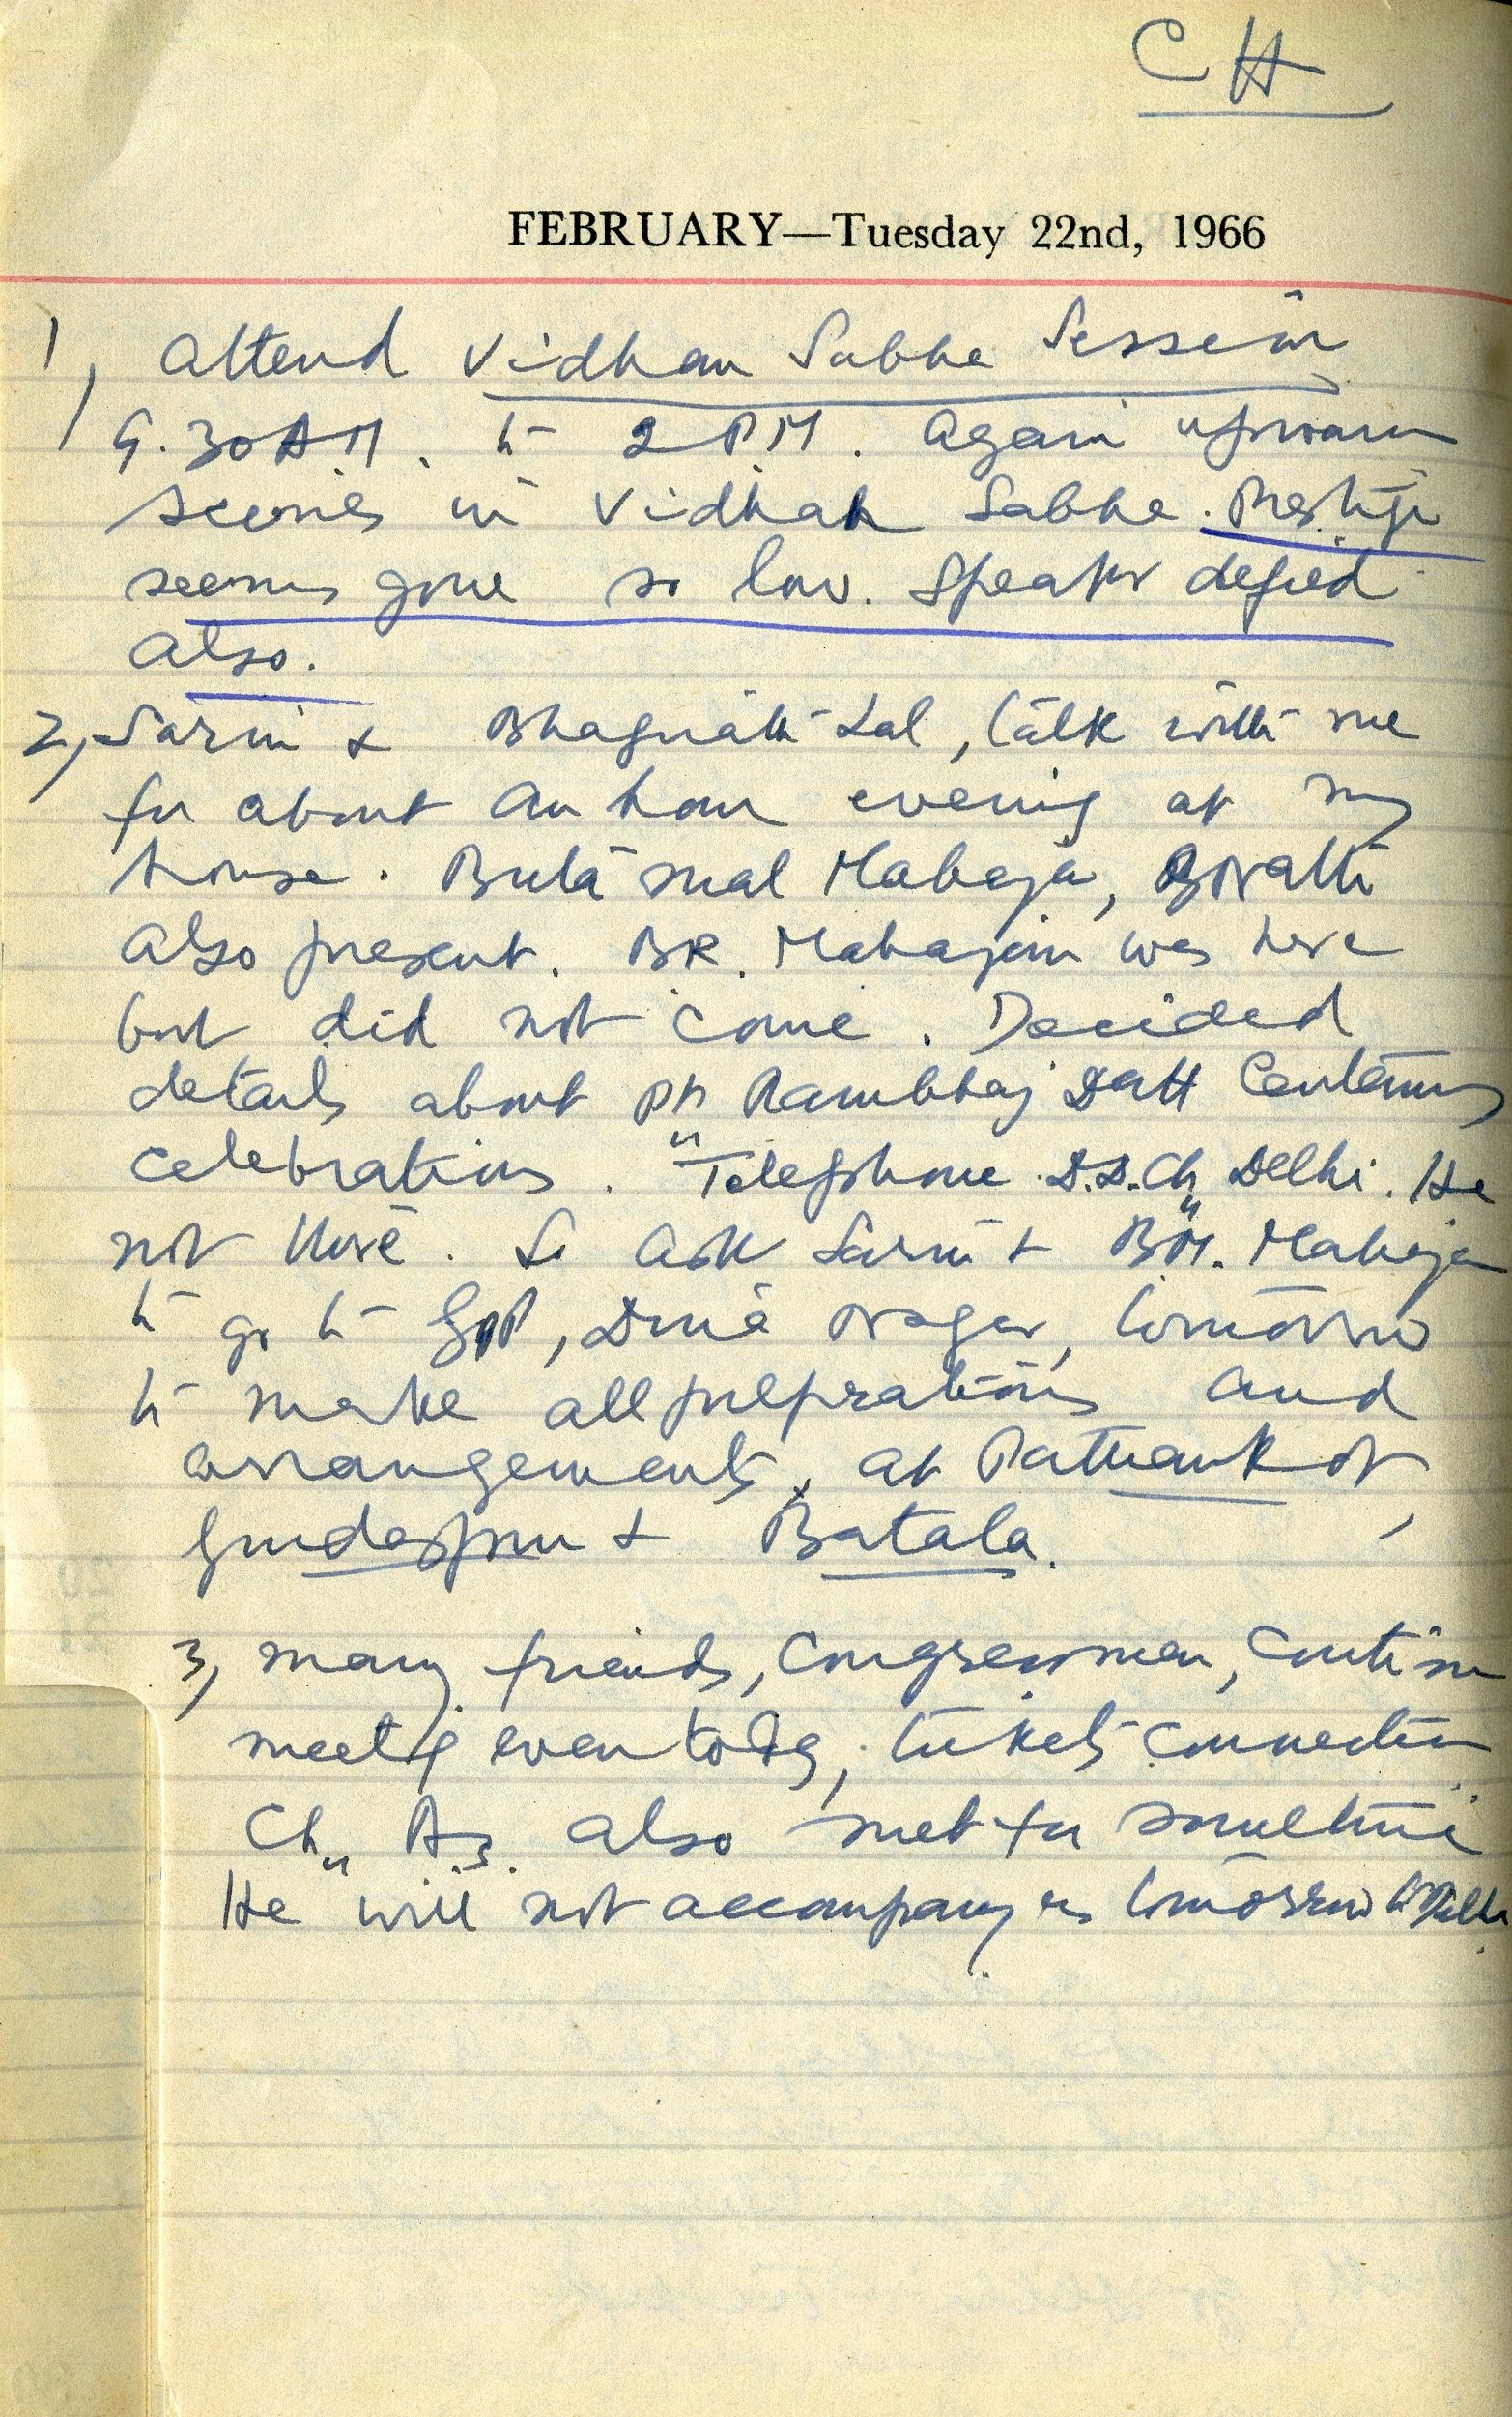 CH
FEBRUARY—Tuesday 22nd, 1966
1, Attend Vidhan Sabha Session
9.30 A.M. to 2 P.M. Again uproar
scenes in Vidhan Sabha. Prestige
seems gone so low. Speaker defied
also.
2, Sarni & Bhagnath Lal, talk with me
for about an hour evening at my
house. Buta mal Mahajan,
also present. B.R. Mahajan was here
but did not come. Decided
details about Pt Rambhaj Datt Centenary
celebrations. Telephone D.D. Ch, Delhi. He
not there. So ask Sarni & B.M. Mahajan
to go to GSP, Dina Nagar, tomorrow
to make all preprations and
arrangements, at Pathankot,
Gurdaspur & Batala.
3, many friends, Congressmen, continue
meetg even today, tickets connection
Ch A.S. also met for sometime
He will not accompany us tomorrow to Delhi.